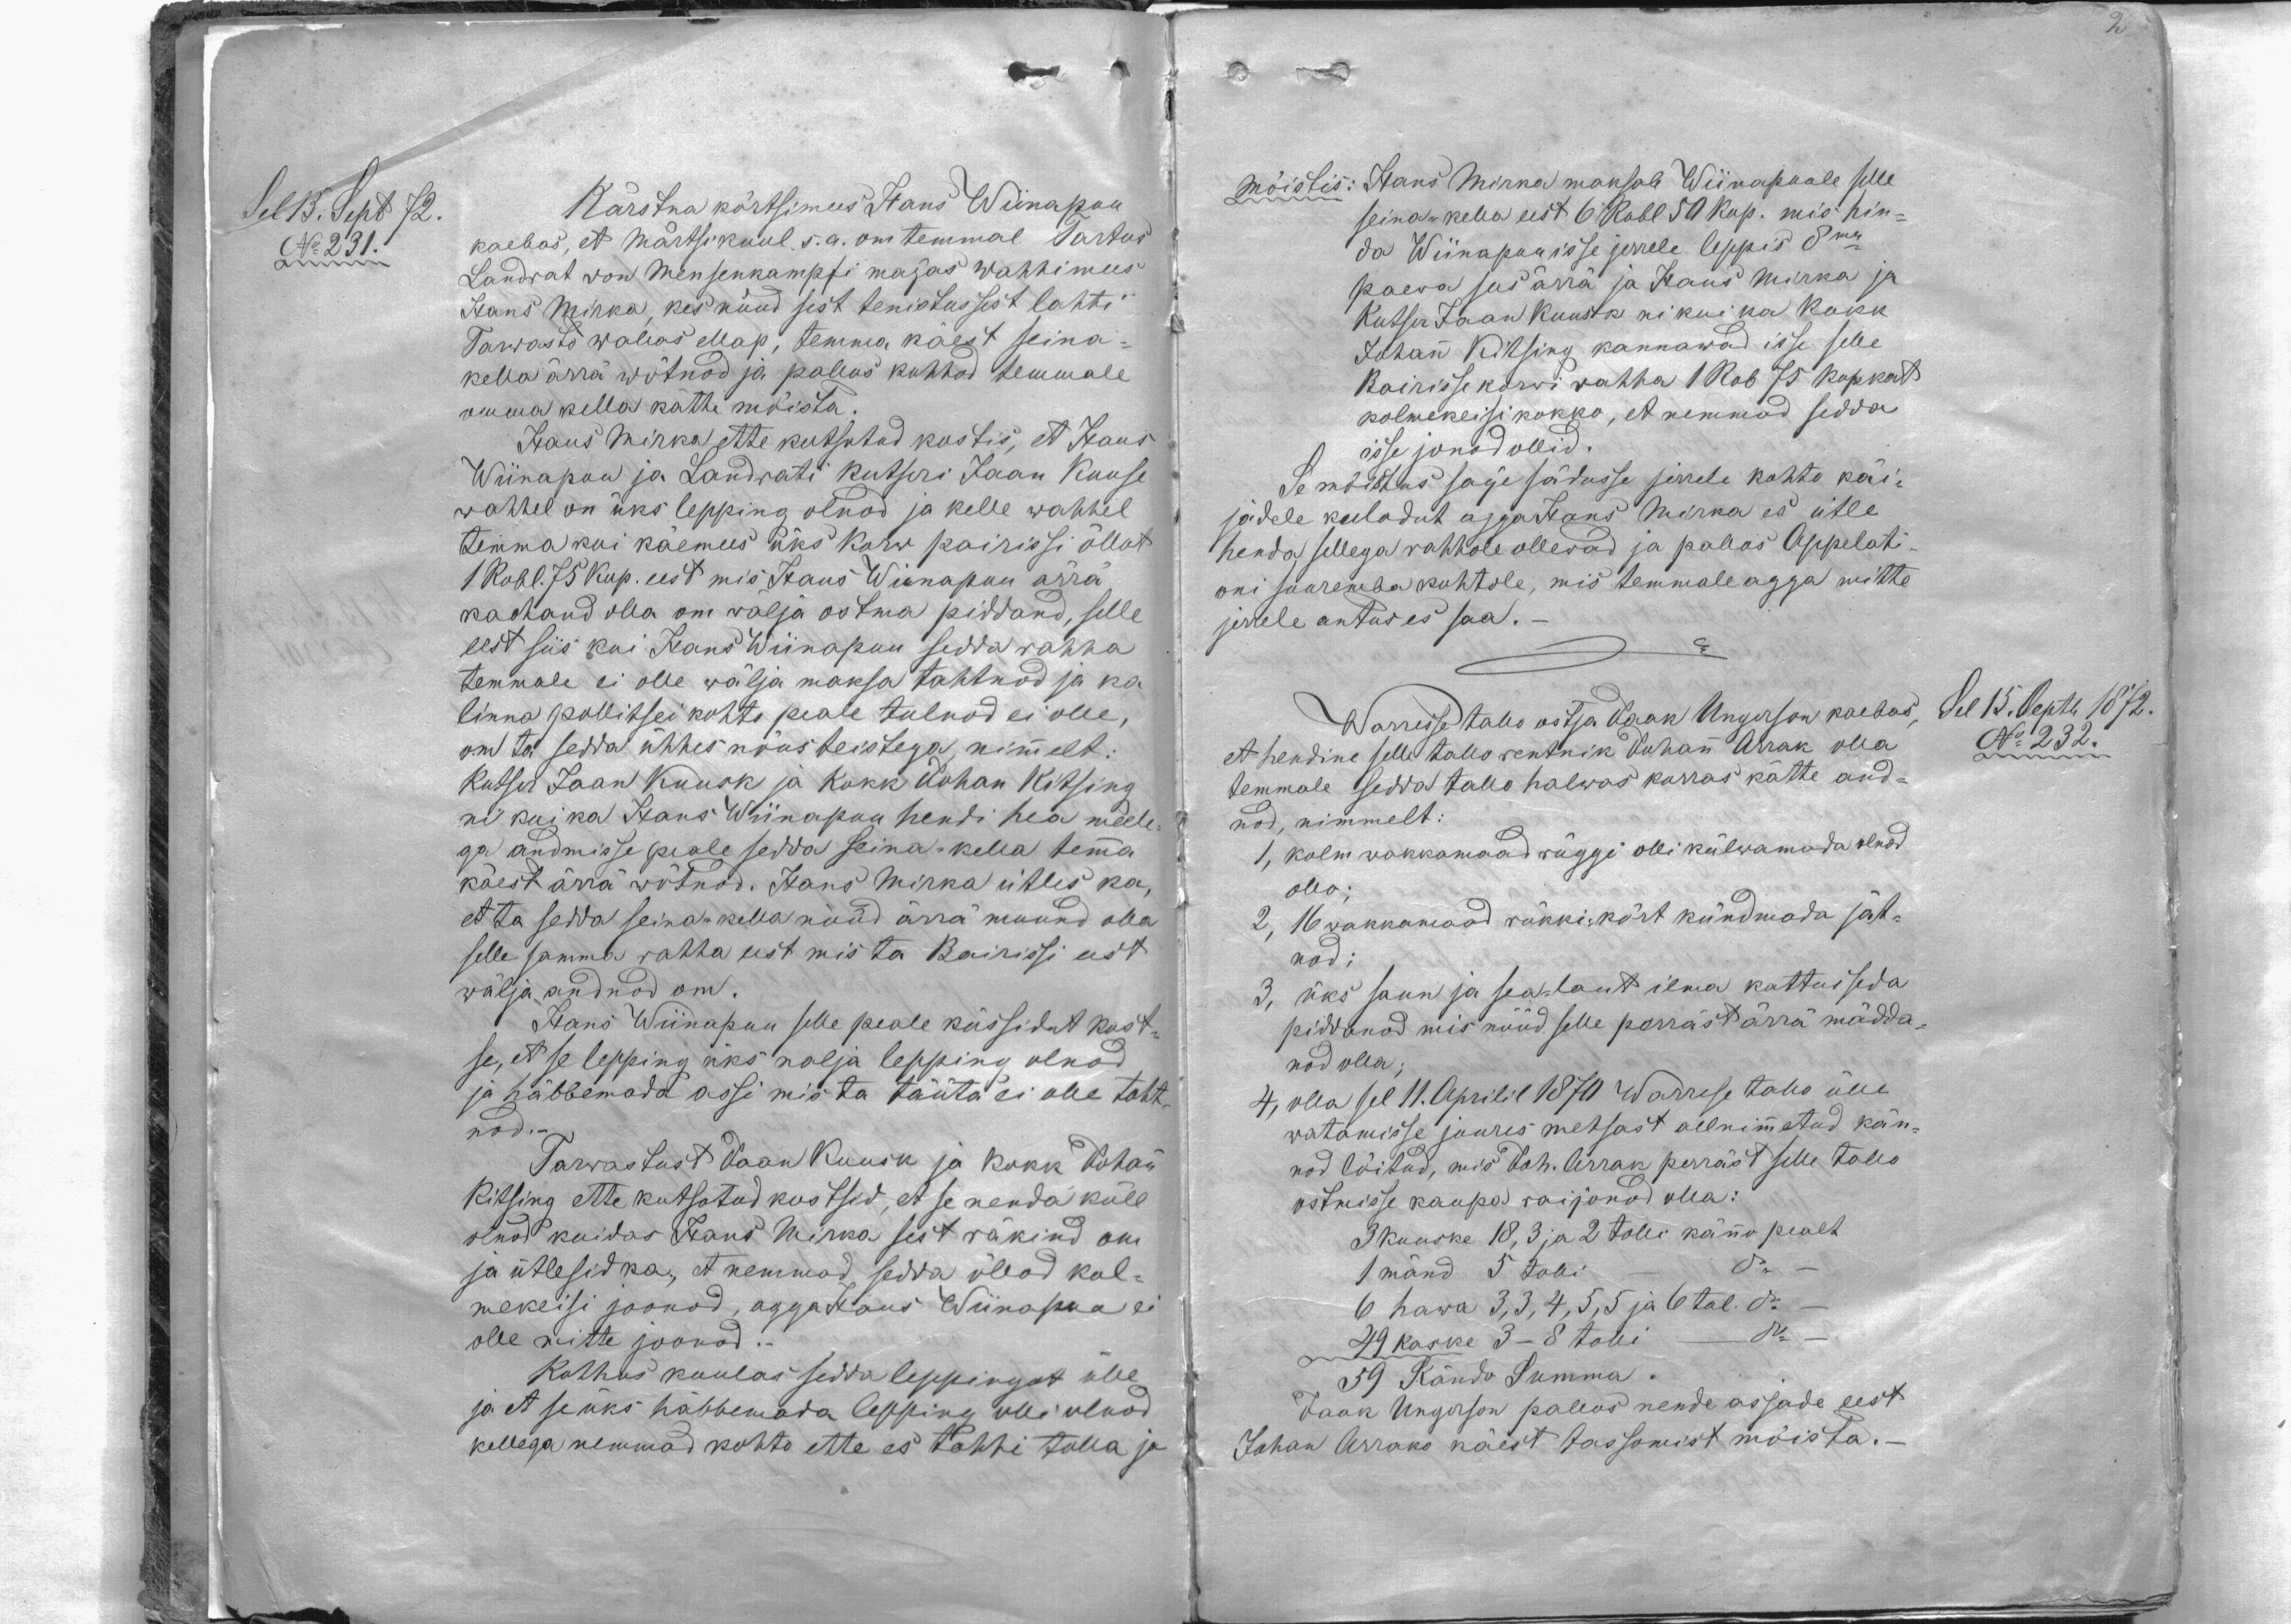 Sel 15. Sept 72.
No 231.
Kärstna körtsimees Hans Wiinapuu
kaebas, et Märtsikuul s. a. om temmal Tartus
Landrat von Mensenkampfi majas wahhimees
Hans Mirka, kes nüüd sest tenistussest lahti
Tarwasto wallas ellap, temma käest seina-
kella ärrä wõtnod ja pallus kohhod temmale
omma kella kätte mõista.
Hans Mirka ette kutsutud kostis, et Hans
Wiinapuu ja Landrati kutseri Jaan Kuuse
wahhel on üks lepping olnod ja kelle wahhel
temma kui käemees üks korw pairissi õllut
1 Robl. 75 Kop. eest mis Hans Wiinapuu ärrä
kaotand olla om wälja ostma piddand, selle
eest siis kui Hans Wiinapuu sedda rahha
temmale ei olle wälja maksa tahtnod ja ka
linna pollitsei kohto peale tulnod ei olle,
om ta sedda ühhes nõus teistega, nim̄elt:
Kutser Jaan Kuusk ja Kokk Johan Kitsing
ni kui ka Hans Wiinapuu hendi hea meele-
ga andmisse peale sedda seina-kella tem̄a
käest ärrä wõtnod. Hans Mirka ütles ka,
et ta sedda seina-kella nüüd ärrä muund olla
selle samma rahha eest mis ta Bairissi eest
wälja andnod om.
Hans Wiinapuu selle peale küssidut kost-
se, et se lepping üks nalja lepping olnod
ja häbbemada assi mis ta täuta ei olle taht-
nod.-
Tarwastust Jaan Kuusk ja Kokk Johan̄
Kitsing ette kutsutud kostsid, et se nenda küll
olnod kuidas Hans Mirka sest räkind om
ja ütlesid ka, et nemmad sedda õllod kol-
mekeisi joonod, agga Hans Wiinapuu ei
olle mitte joonod.-
Kohhus kuulas sedda leppingot ülle
ja et se üks häbbemada lepping olli olnod
kellega nemmad kohto ette es tohhi tulla ja
2
Mõistis: Hans Mirka maksab Wiinapuule selle
seina-kella eest 6 Robl 50 Kop. mis hin-
da Wiinapuu isse jerrele leppis 8ma
paewa sus ärrä ja Hans Mirka ja
Kutser Jaan Kuusk ni kui ka Kokk
Johan̄ Kitsing kannawad isse selle
Bairisse korwi rahha 1 Rob 75 Kopkat
kolmekeisi kokko, et nemmad sedda
isse jonod ollid.
Se mõistus saije sädusse jerrele kohto käi-
jädele kulodut agga Hans Mirka es ütle
henda sellega rahhole ollewad ja pallus Appelati-
oni suuremba kohtole, mis temmale agga mitte
jerrele antus es saa.-
Sel 15. Septb 1872.
No 232.
Warresse tallo ostja Jaak Ungerson kaebas,
et hendine selle tallo rentnik Johan̄ Arrak olla
temmale sedda tallo halwas korras kätte and-
nod, nimmelt:
1, kolm wakkamaad rüggi olli külwamada olnod
olla;
2, 16 wakkamaad rükki-kõrt kündmada jät-
nod;
3, üks saun ja sea-laut ilma kattusseda
piddanod mis nüüd selle perräst ärrä mädda-
nod olla;
4, olla sel 11. Aprilil 1870 Warrese tallo ülle
watamisse juures metsast allnim̄etud kän-
nod löitud, mis Joh. Arrak perräst selle tallo
ostmisse kaupa raijonod olla:
3 kuuske 18, 3 ja 2 tolli kän̄o pealt
1 mänd 5 tolli — do —
6 hawa 3, 3, 4, 5, 5 ja 6 tol. do —
49 kaske 3-8 tolli — do —
59 Kändo Summa.
Jaak Ungerson pallus nende asjade eest
Johan Arrako käest tassomist mõista.-